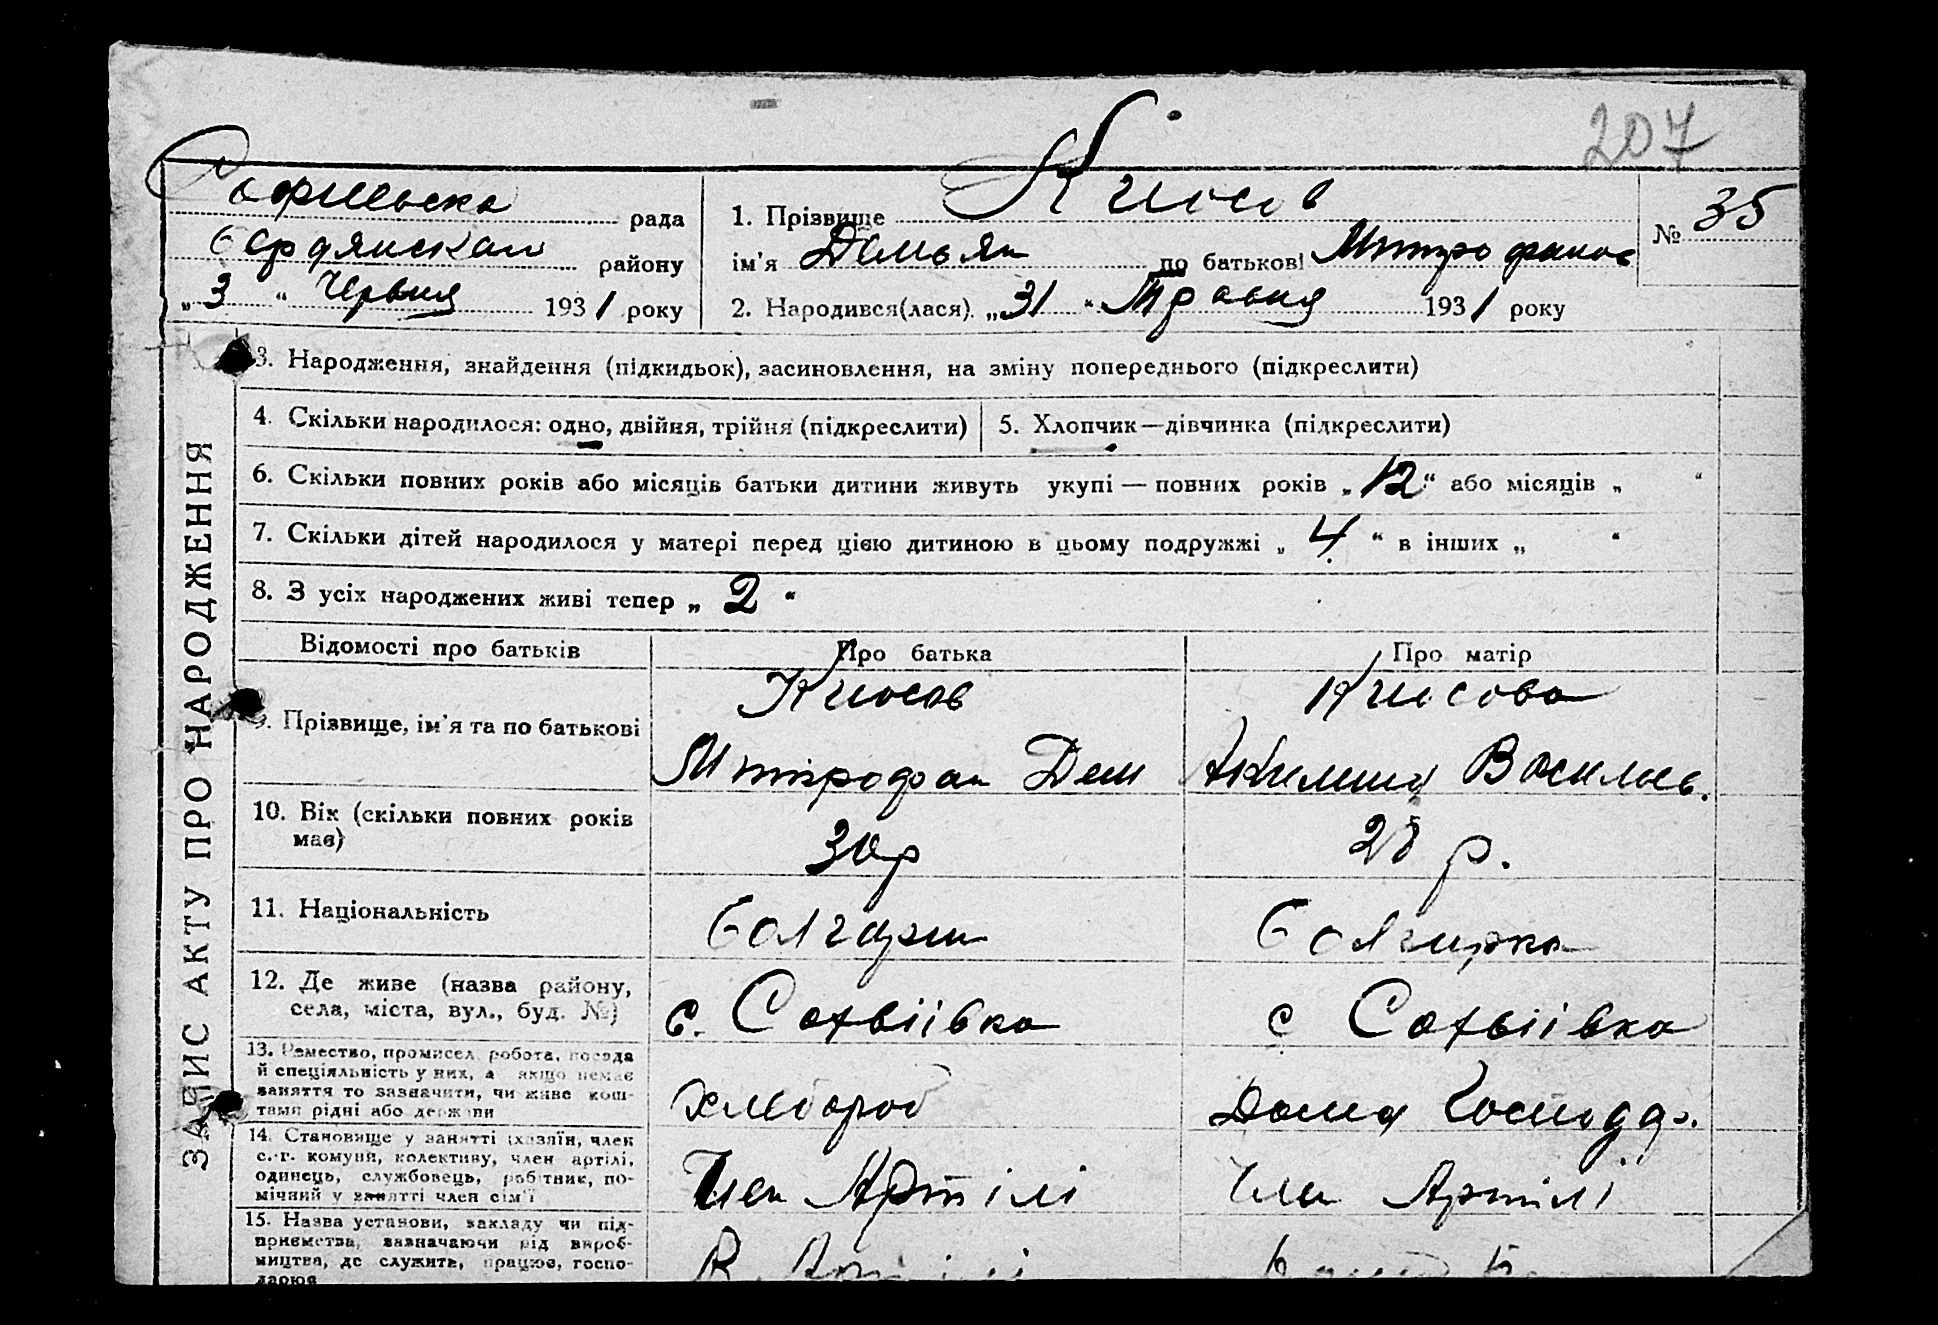 207
Софиевска рада
Бердянскаи району
„3“ Червня 1931 року
1. Прізвище Кіосов
ім'я Демьян по батькові Митрофанов
№ 35
2. Народився(лася) „31“ Травня 1931 року
ЗАПИС АКТУ ПРО НАРОДЖЕННЯ
3. Народження, знайдення (підкидьок), засиновлення, на зміну попереднього (підкреслити)
4. Скільки народилося: одно, двійня, трійня (підкреслити)
5. Хлопчик—дівчинка (підкреслити)
6. Скільки повних років або місяців батьки дитини живуть укупі — повних років „12“ або місяців „ “
7. Скільки дітей народилося у матері перед цією дитиною в цьому подружжі „4“ в інших „ “
8. З усіх народжених живі тепер „2“
Відомості про батьків Про батька Про матір
9. Прізвище, ім'я та по батькові
Киосов
Митрофан Дем
Киосова
Акилина Васильев.
10. Вік (скільки повних років
має)
30р
28 р.
11. Національність
болгарин
болгарка
12. Де живе (назва району,
села, міста, вул., буд. №)
с. Софвіївка
с Софвіївка
13. Ремество, промисел, робота, посада
й спеціяльність у них, а якщо немає
заняття то зазначити, чи живе кош-
тами рідні або держави
хлебороб
Дома Господар.
14. Становище у занятті (хазяїн, член
с.-г. комуни, колективу, член артілі,
одинець, службовець, робітник, по-
мічний у занятті член сім'ї
Член Артілі
Член Артілі
15. Назва установи, закладу чи під-
приємства, зазначаючи рід вироб-
ництва, де служить, працює, госпо-
дарює
В Артілі